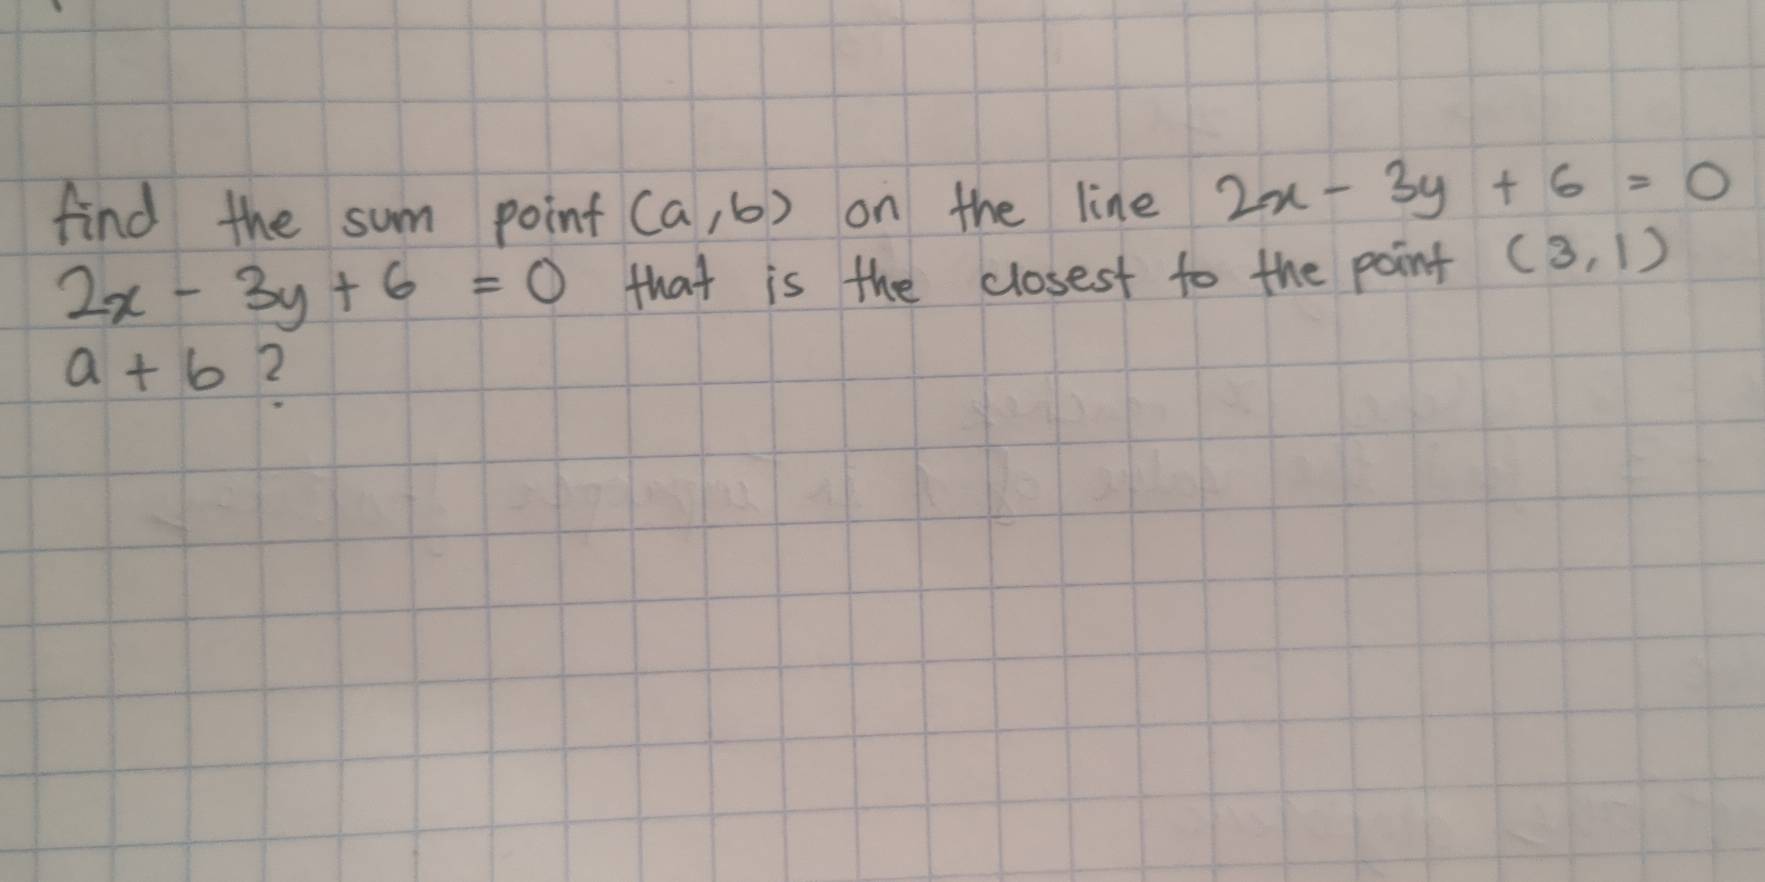 find the sum point (a,b) on the line 2x - 3y + 6 = 0
2x - 3y + 6 = 0 that is the closest to the point (3,1)
a + b ?